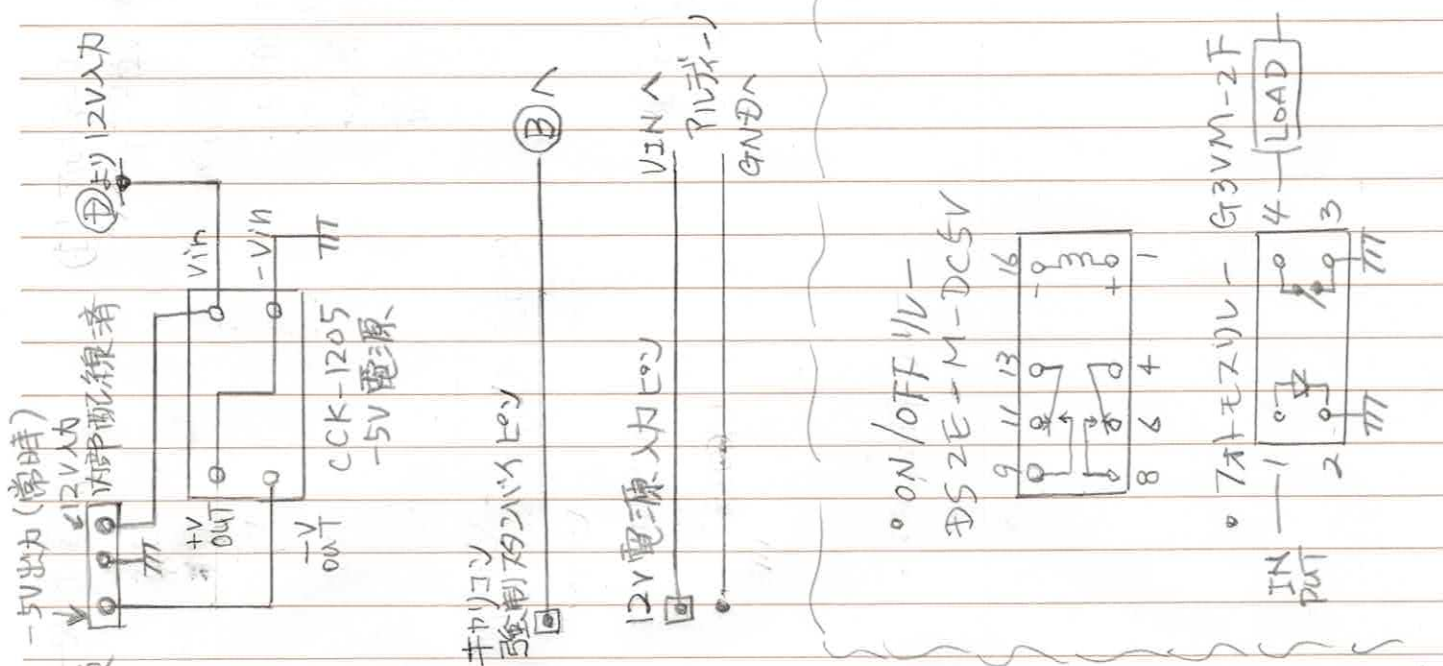 -5V出力(常時)
12V入力
内部配線済
Ⓓより12V入力
Vin
-Vin
+V
OUT
-V
OUT
CCK-1205
-5V電源
キャリコン
強制スタンバイピン
Ⓑへ
12V電源入力ピン
VINへ
アルディーノ
GNDへ
・ON/OFFリレー
DS2E-M-DC5V
9 11 13 16
- +
8 6 4 1
・フォトモスリレー G3VM-2F
IN
PUT
1
2
4
3
LOAD